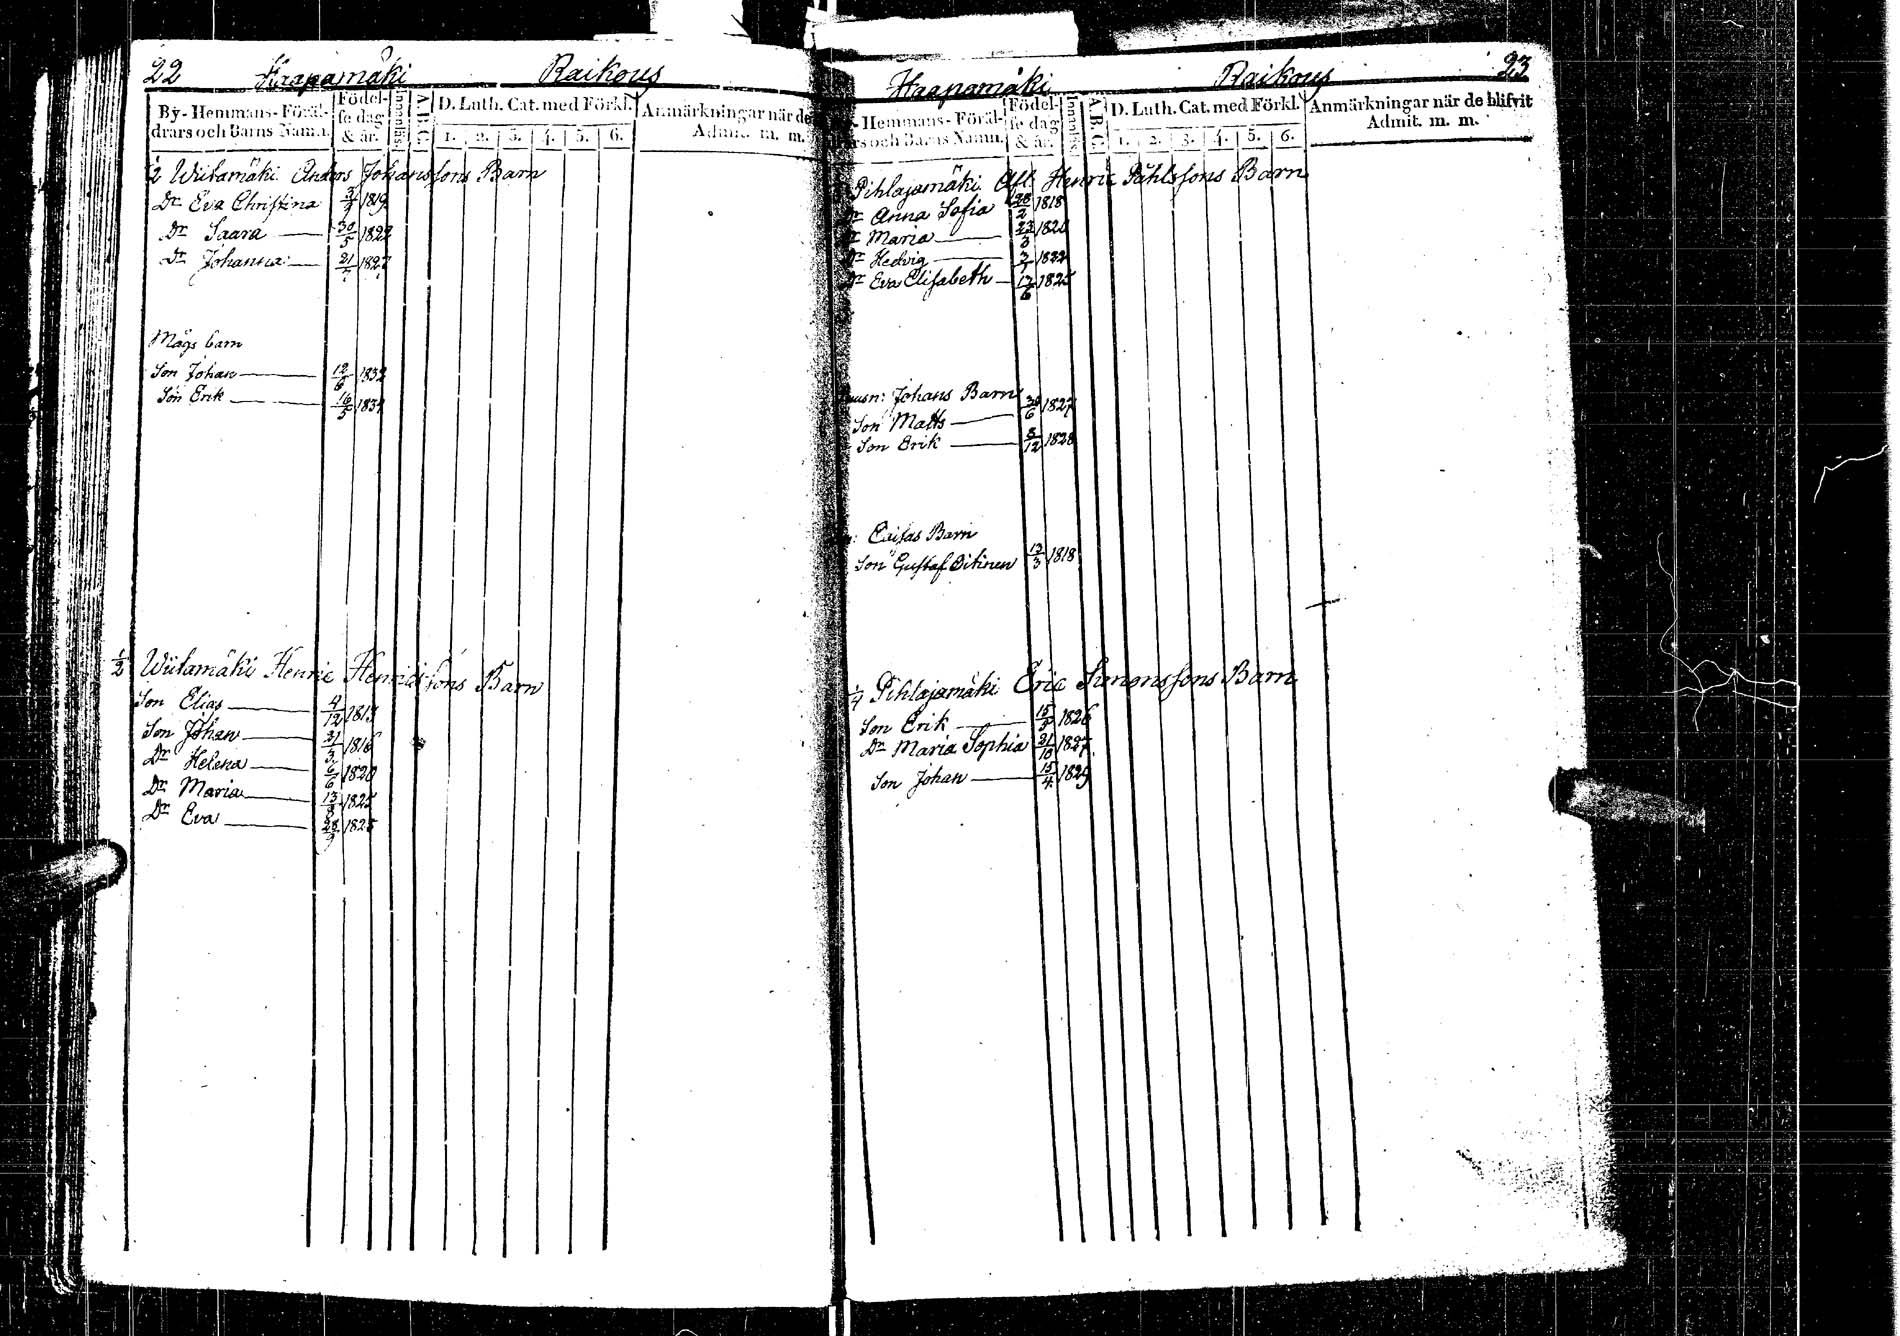 22 Haapamäki Raikous
By- Hemmans- Föräl-
drars och Barns Namn.
Födel-
se dag
& år.
Innanläs.
A.B.C.
D. Luth. Cat. med Förkl.
1. 2. 3. 4. 5. 6.
Anmärkningar när de
Admit. m. m.
1/2 Wiitamäki Anders Johanssons Barn
Dr Eva Christina 1819
Dr Saara 30/5 1822
Dr Johanna 1827
Mågs barn
Son Johan 12/6 1832
Son Erik 16/5 1834
1/2 Wiitamäki Henric Henricssons Barn
Son Elias 4/12 1813
Son Johan 31/3 1816
Dr Helena 6/6 1820
Dr Maria 1825
Dr Eva 1825
Haapamäki Raikous 23
Hemmans- Föräl-
och Barns Namn.
Födel-
se dag
& år.
Innanläs.
A.B.C.
D. Luth. Cat. med Förkl.
1. 2. 3. 4. 5. 6.
Anmärkningar när de blifvit
Admit. m. m.
Pihlajamäki Afl. Henric Påhlssons Barn
Dr Anna Sofia 28/2 1818
Dr Maria
Dr Hedvig 1822
Dr Eva Elisabeth 1825
Johans Barn
Son Matts 1827
Son Erik 8/12 1828
Caisas Barn
Son Gustaf Oitinen 13/3 1818
1/4 Pihlajamäki Eric Simonssons Barn
Son Erik 1826
Dr Maria Sophia 21/10 1827
Son Johan 15/4 1829